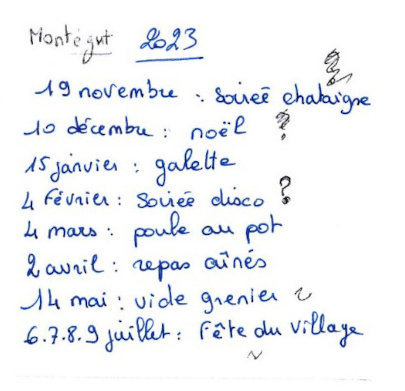 Montégut 2023
19 novembre : soirée chataigne ?
10 décembre : noël ?
15 janvier : galette
4 Février : soirée disco ?
4 mars : poule au pot
2 avril : repas aînés
14 mai : vide grenier
6.7.8.9 juillet : Fête du village